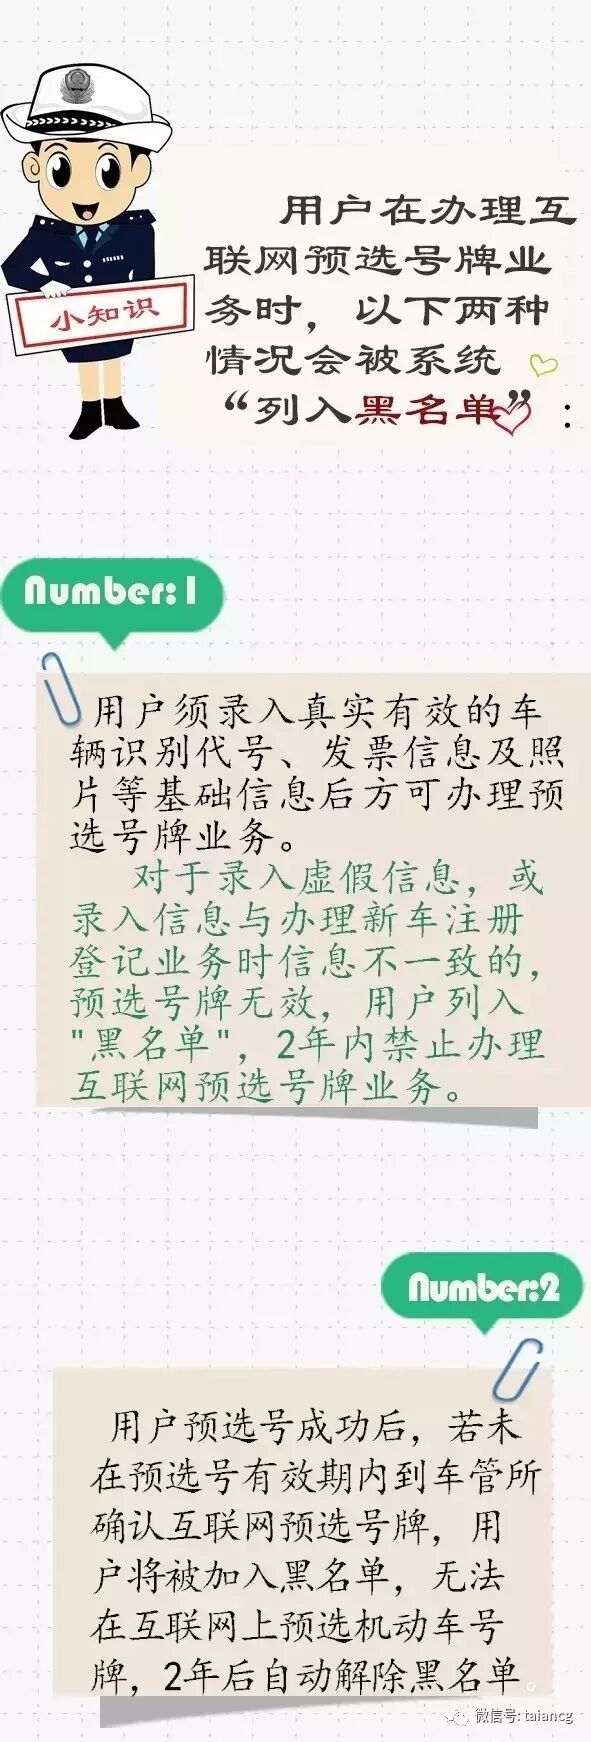 小知识
用户在办理互
联网预选号牌业
务时，以下两种
情况会被系统
“列入黑名单”：
Number:1
用户须录入真实有效的车
辆识别代号、发票信息及照
片等基础信息后方可办理预
选号牌业务。
对于录入虚假信息，或
录入信息与办理新车注册
登记业务时信息不一致的，
预选号牌无效，用户列入
"黑名单"，2年内禁止办理
互联网预选号牌业务。
Number:2
用户预选号成功后，若未
在预选号有效期内到车管所
确认互联网预选号牌，用
户将被加入黑名单，无法
在互联网上预选机动车号
牌，2年后自动解除黑名单。
微信号: taiancg